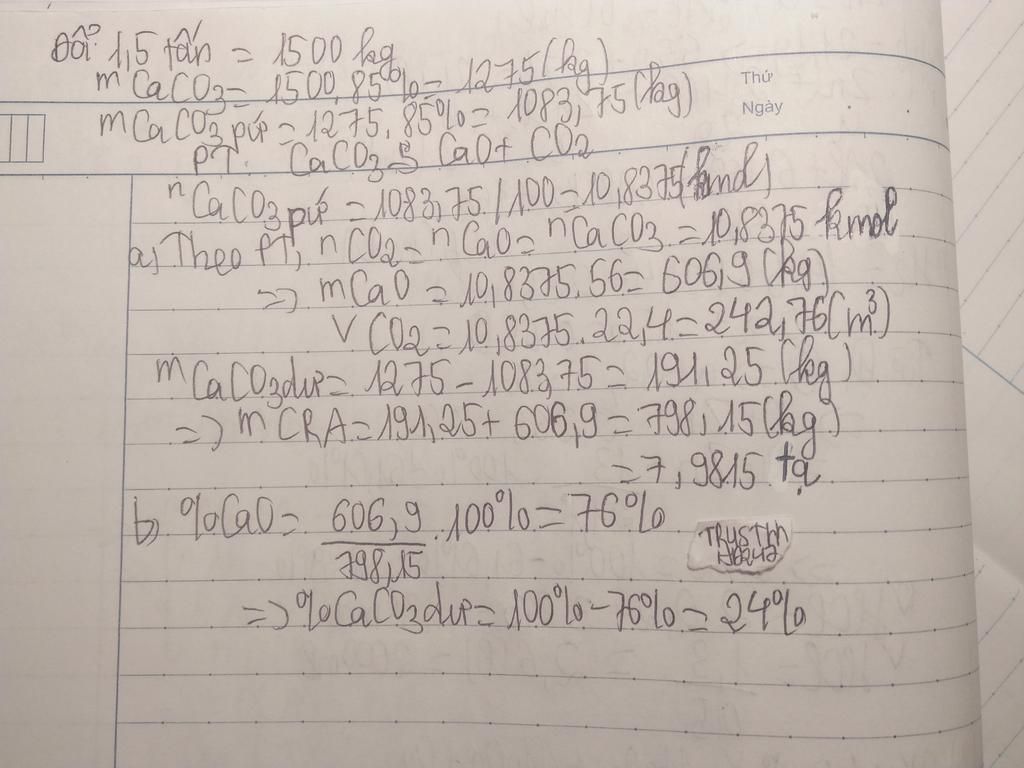 Đổi 1,5 tấn = 1500 kg
mCaCO3 = 1500.85% = 1275(kg)
Thứ
Ngày
mCaCO3 pứ = 1275.85% = 1083,75(kg)
PT: CaCO3 → CaO + CO2
nCaCO3 pứ = 1083,75/100 = 10,8375(kmol)
a, Theo PT, nCO2 = nCaO = nCaCO3 = 10,8375 kmol
=> mCaO = 10,8375.56 = 606,9(kg)
VCO2 = 10,8375.22,4 = 242,76(m³)
mCaCO3 dư = 1275 - 1083,75 = 191,25(kg)
=> mCRA = 191,25 + 606,9 = 798,15(kg)
= 7,9815 tạ
b, %CaO = 606,9/798,15 .100% = 76%
=> %CaCO3 dư = 100% - 76% = 24%